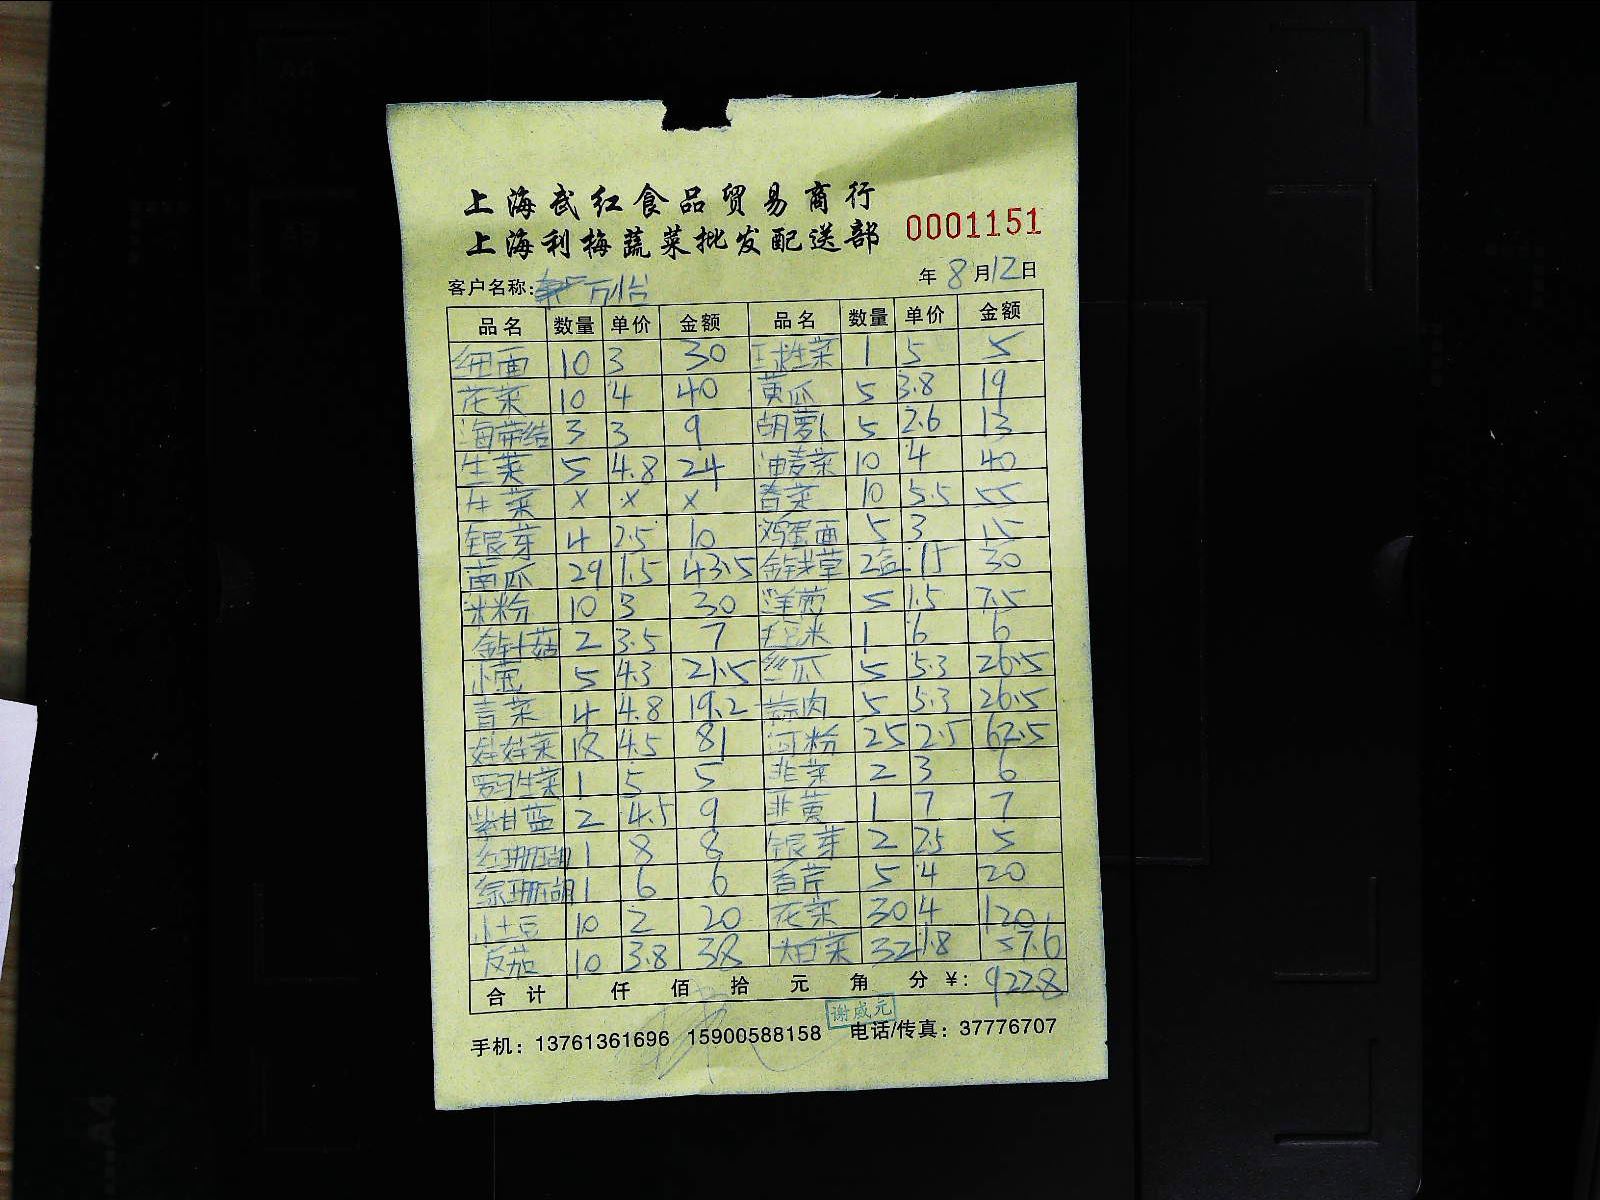 上海武红食品贸易商行
上海利梅蔬菜批发配送部
0001151
客户名称: 万怡
年 8 月 12 日
品名 数量 单价 金额 品名 数量 单价 金额
细面 10 3 30 球生菜 1 5 5
花菜 10 4 40 黄瓜 5 3.8 19
海带结 3 3 9 胡萝卜 5 2.6 13
生菜 5 4.8 24 油麦菜 10 4 40
生菜 x x x 香菜 10 5.5 55
银芽 4 2.5 10 鸡蛋面 5 3 15
南瓜 29 1.5 43.5 金钱草 2盒 15 30
米粉 10 3 30 洋葱 5 1.5 7.5
金针菇 2 3.5 7 米 1 6 6
小葱 5 4.3 21.5 丝瓜 5 5.3 26.5
青菜 4 4.8 19.2 蒜肉 5 5.3 26.5
娃娃菜 18 4.5 81 河粉 25 2.5 62.5
罗马生菜 1 5 5 韭菜 2 3 6
紫甘蓝 2 4.5 9 韭黄 1 7 7
红珊瑚 1 8 8 银芽 2 2.5 5
绿珊瑚 1 6 6 香芹 5 4 20
小土豆 10 2 20 花菜 30 4 120
反茄 10 3.8 38 大白菜 32 1.8 57.6
合计 仟 佰 拾 元 角 分 ¥: 922.8
谢成元
手机: 13761361696 15900588158 电话/传真: 37776707
A4